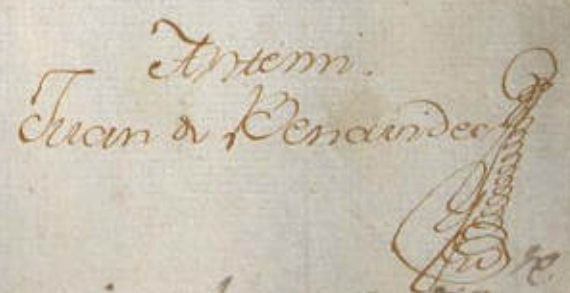 Antemi.
Juan de Benavides